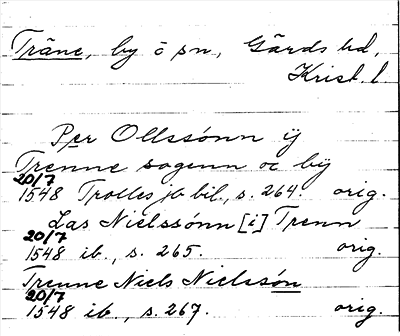 Träne, by o sn, Gärds hd,
Krist. l.
Per Ollssónn ÿ
Trenne sogenn oc bÿ
20/7
1548 Trolles jb bil., s. 264. orig.
Las Nielssónn [i] Trenn
20/7
1548 ib., s. 265. orig.
Trenne Niels Nielssón
20/7
1548 ib., s. 267. orig.